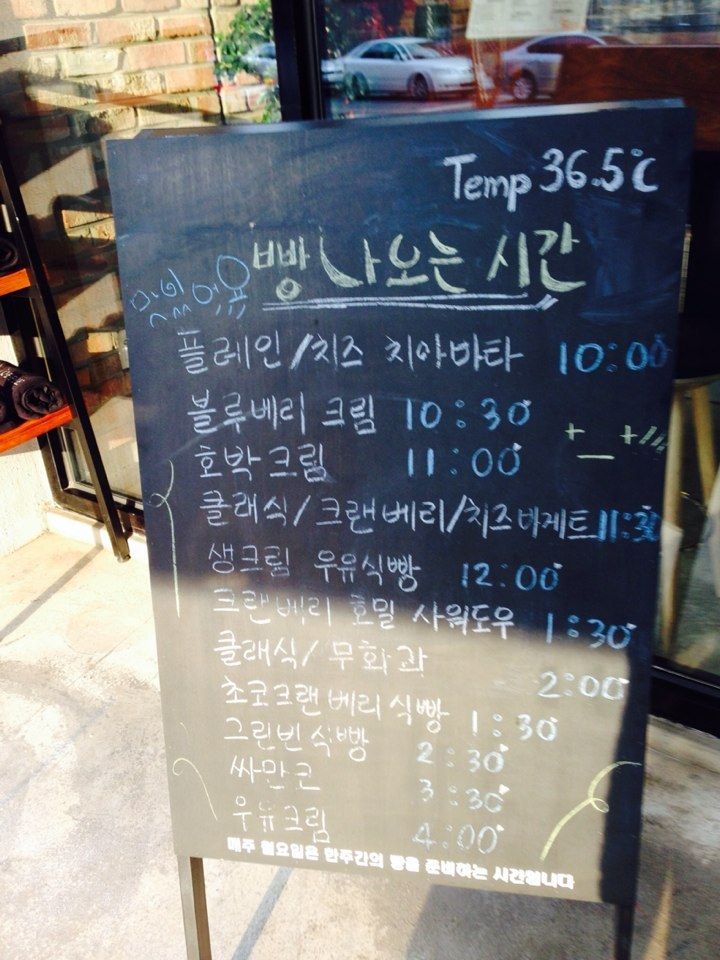 Temp 36.5℃
맛있어요 빵 나오는 시간
플레인/치즈 치아바타 10:00
블루베리 크림 10:30
호박크림 11:00
클래식/크랜베리/치즈바게트 11:30
생크림 우유식빵 12:00
크랜베리 호밀 사워도우 1:30
클래식/무화과 2:00
초코크랜베리식빵 1:30
그린빈식빵 2:30
싸만코 3:30
우유크림 4:00
매주 월요일은 한주간의 빵을 준비하는 시간입니다